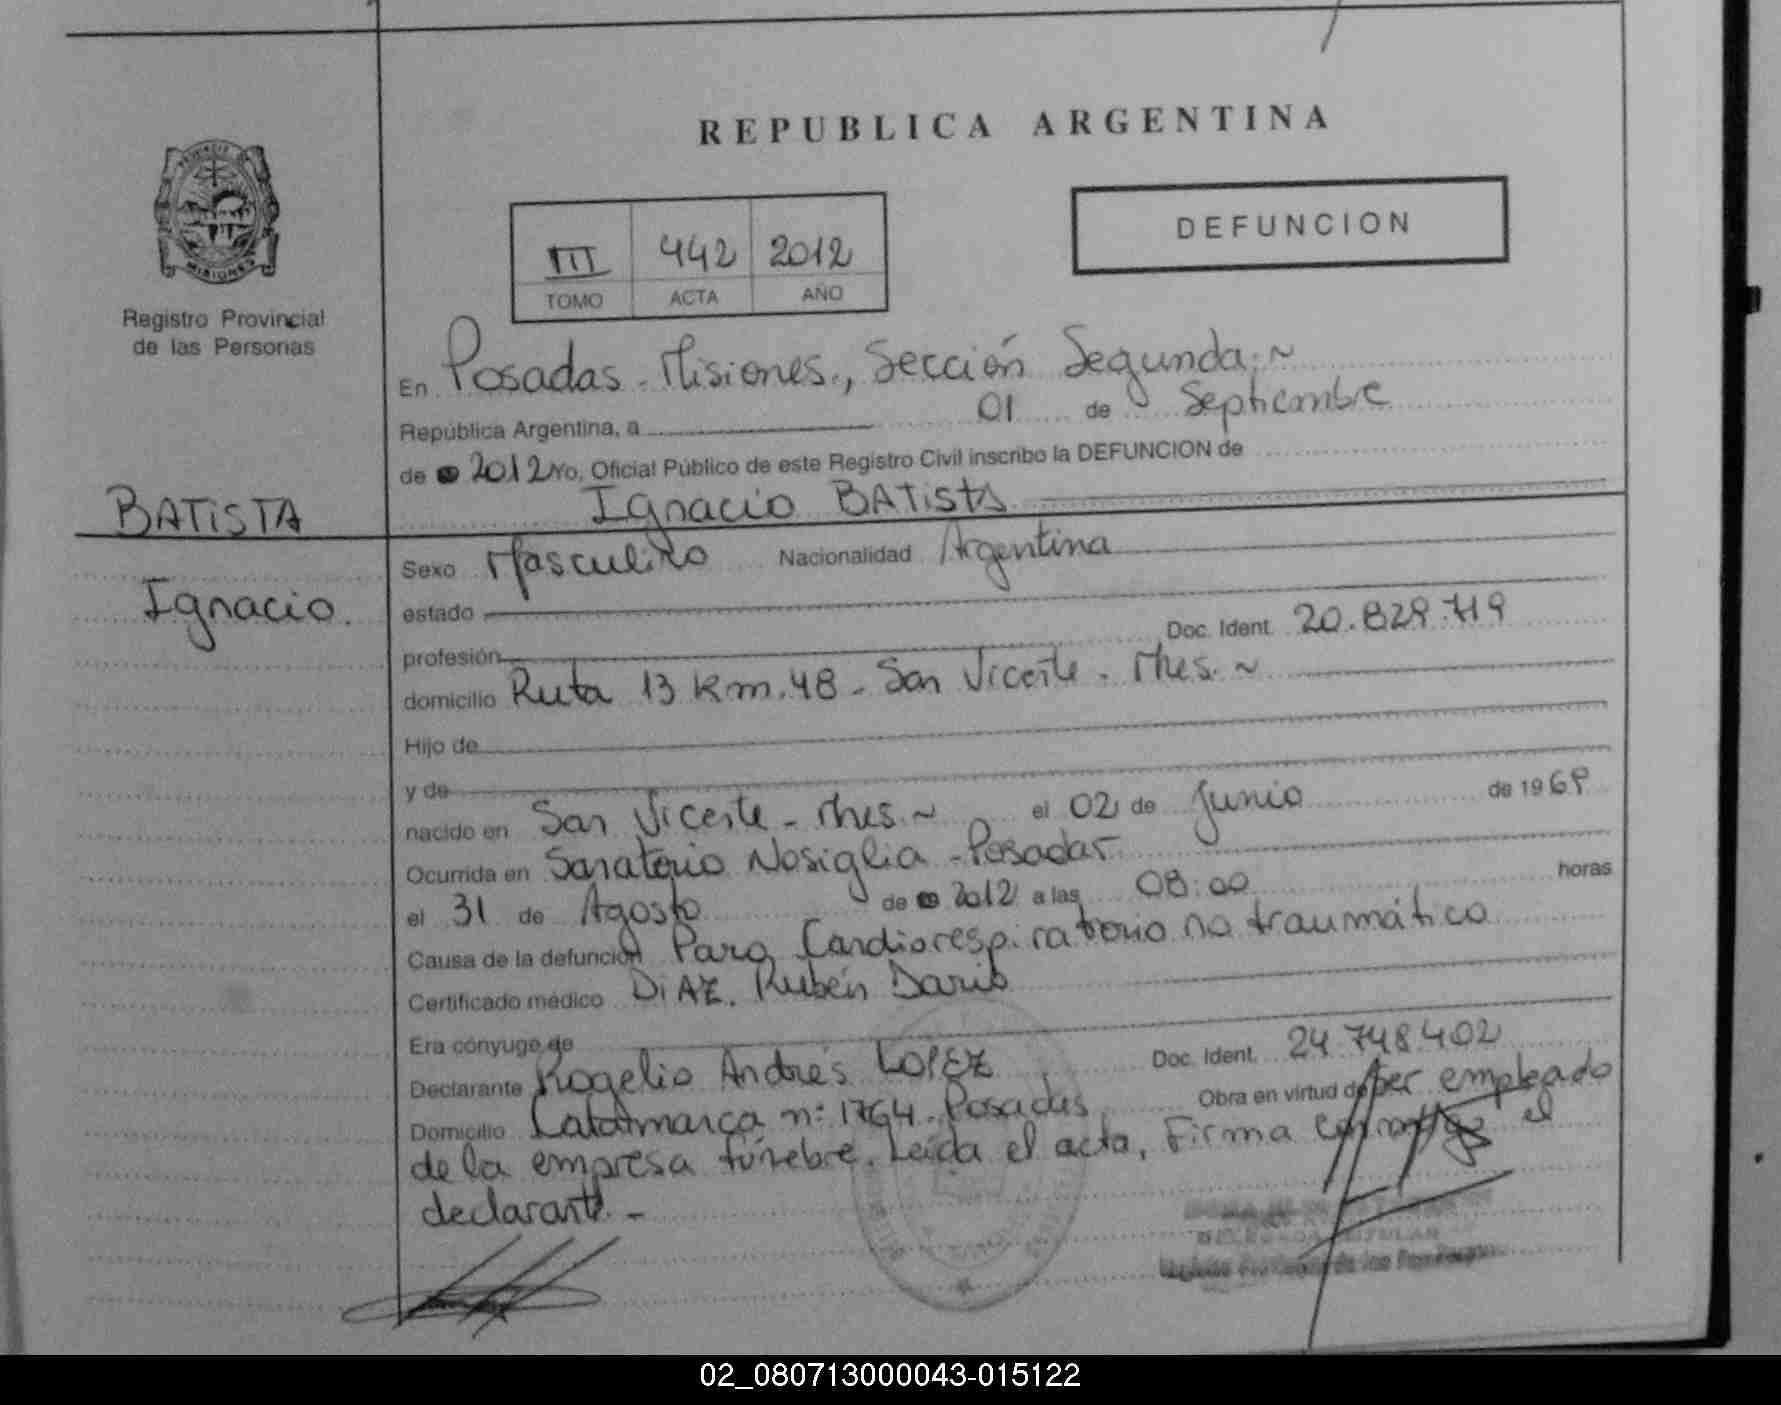 REPUBLICA ARGENTINA
DEFUNCION
III 442 2012
TOMO ACTA AÑO
MISIONES
Registro Provincial
de las Personas
En Posadas. Misiones., Sección Segunda. ~
República Argentina, a 01 de Septiembre
de 2012 Yo, Oficial Público de este Registro Civil inscribo la DEFUNCION de
BATISTA
Ignacio BATISTA
Sexo Masculino Nacionalidad Argentina
Ignacio.
estado
profesión Doc. Ident. 20.829.719
domicilio Ruta 13 Km. 48 - San Vicente - Mnes. ~
Hijo de
y de
nacido en San Vicente - Mnes. ~ el 02 de Junio de 1969
Ocurrida en Sanatorio Nosiglia - Posadas
el 31 de Agosto de 2012 a las 08:00 horas
Causa de la defunción Paro Cardiorespiratorio no traumático
Certificado médico DIAZ. Rubén Dario
Era cónyuge de
Declarante Rogelio Andrés LOPEZ Doc. Ident. 24.748.402
Domicilio Catamarca nº 1764. Posadas Obra en virtud de ser empleado
de la empresa fúnebre. Leída el acta, Firma conmigo el
declarante. -
02_080713000043-015122